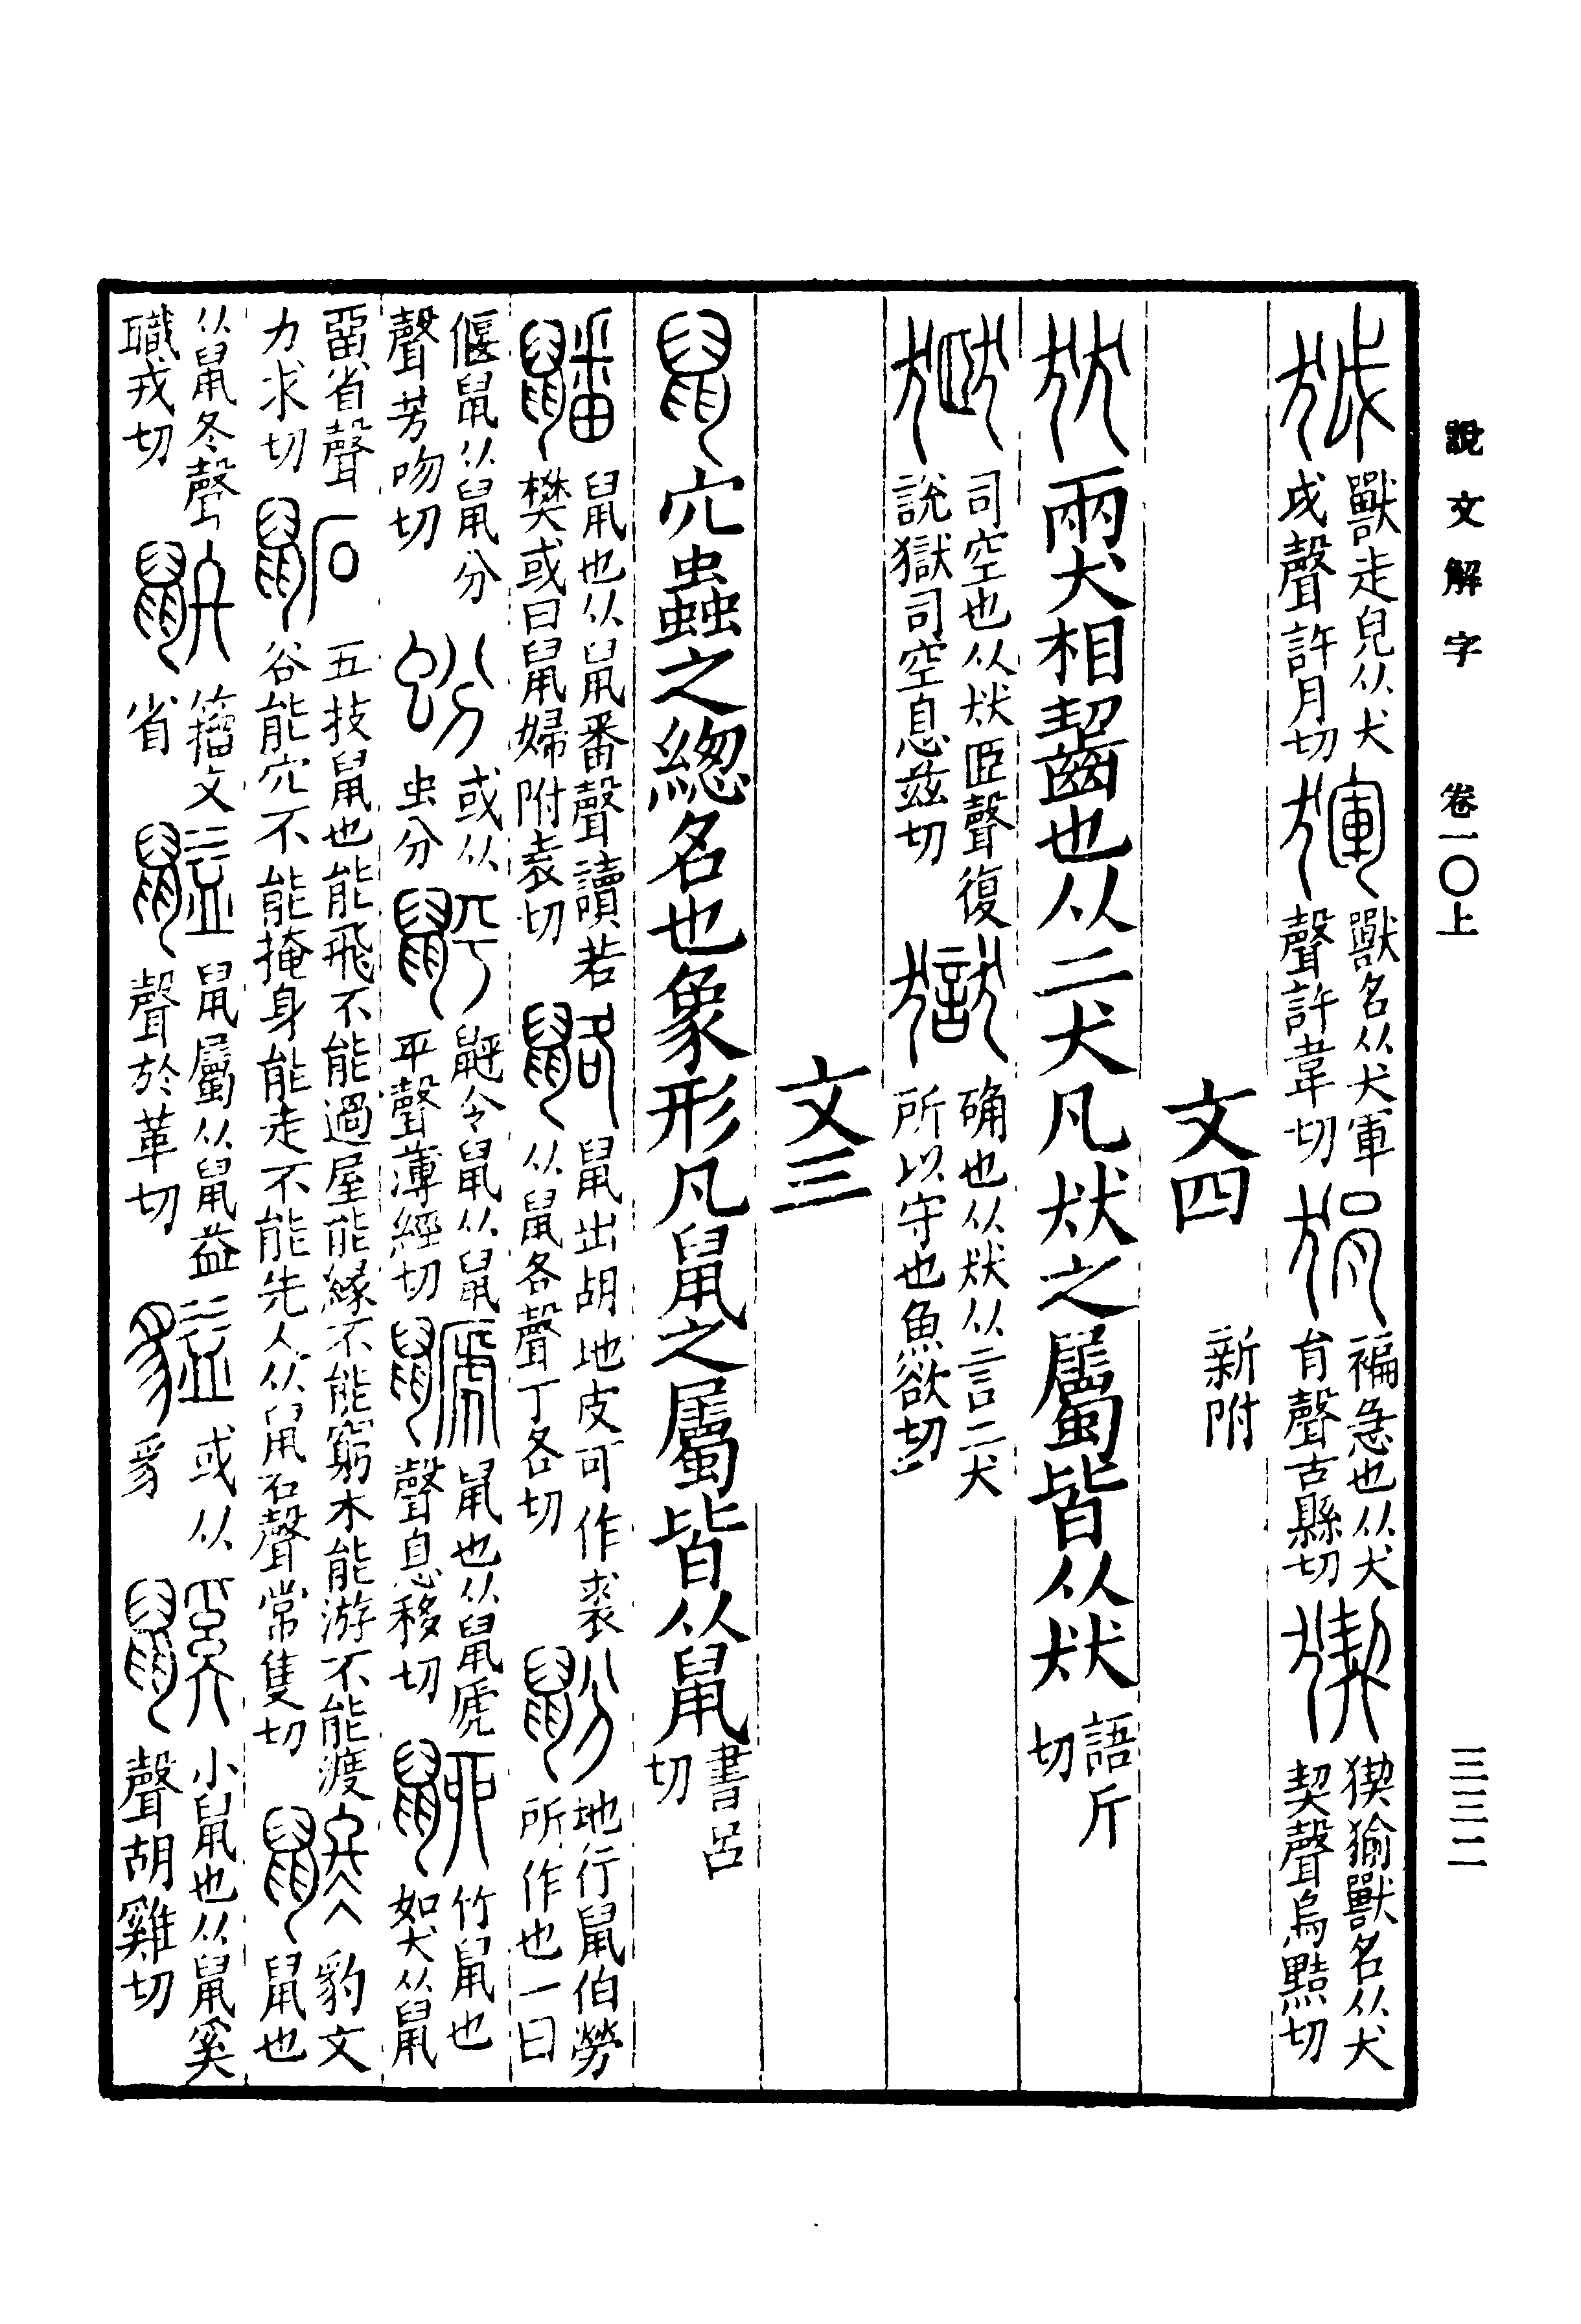 說文解字　卷一〇上　三三二
狘獸走皃从犬戉聲許月切𤟤獸名从犬軍聲許韋切狷褊急也从犬肙聲古縣切猰猰㺄獸名从犬契聲烏黠切
文四　新附
㹜兩犬相齧也从二犬凡㹜之屬皆从㹜語斤切
㺇司空也从㹜𦣞聲復說獄司空息兹切獄确也从㹜从言二犬所以守也魚欲切
文三
鼠穴蟲之緫名也象形凡鼠之屬皆从鼠書呂切
𪕰鼠也从鼠番聲讀若樊或曰鼠婦附袁切䶅鼠出胡地皮可作裘从鼠各聲丁各切鼢地行鼠伯勞所作也一曰
偃鼠从鼠分聲芳吻切蚡或从虫分䶄䶄令鼠从鼠平聲薄經切鼶鼠也从鼠虒聲息移切䶉竹鼠也如犬从鼠
畱省聲力求切鼫五技鼠也能飛不能過屋能緣不能窮木能游不能渡谷能穴不能掩身能走不能先人从鼠石聲常隻切鼨豹文鼠也
从鼠冬聲職戎切籀文省䶈鼠屬从鼠益聲於革切貖或从豸鼷小鼠也从鼠奚聲胡雞切